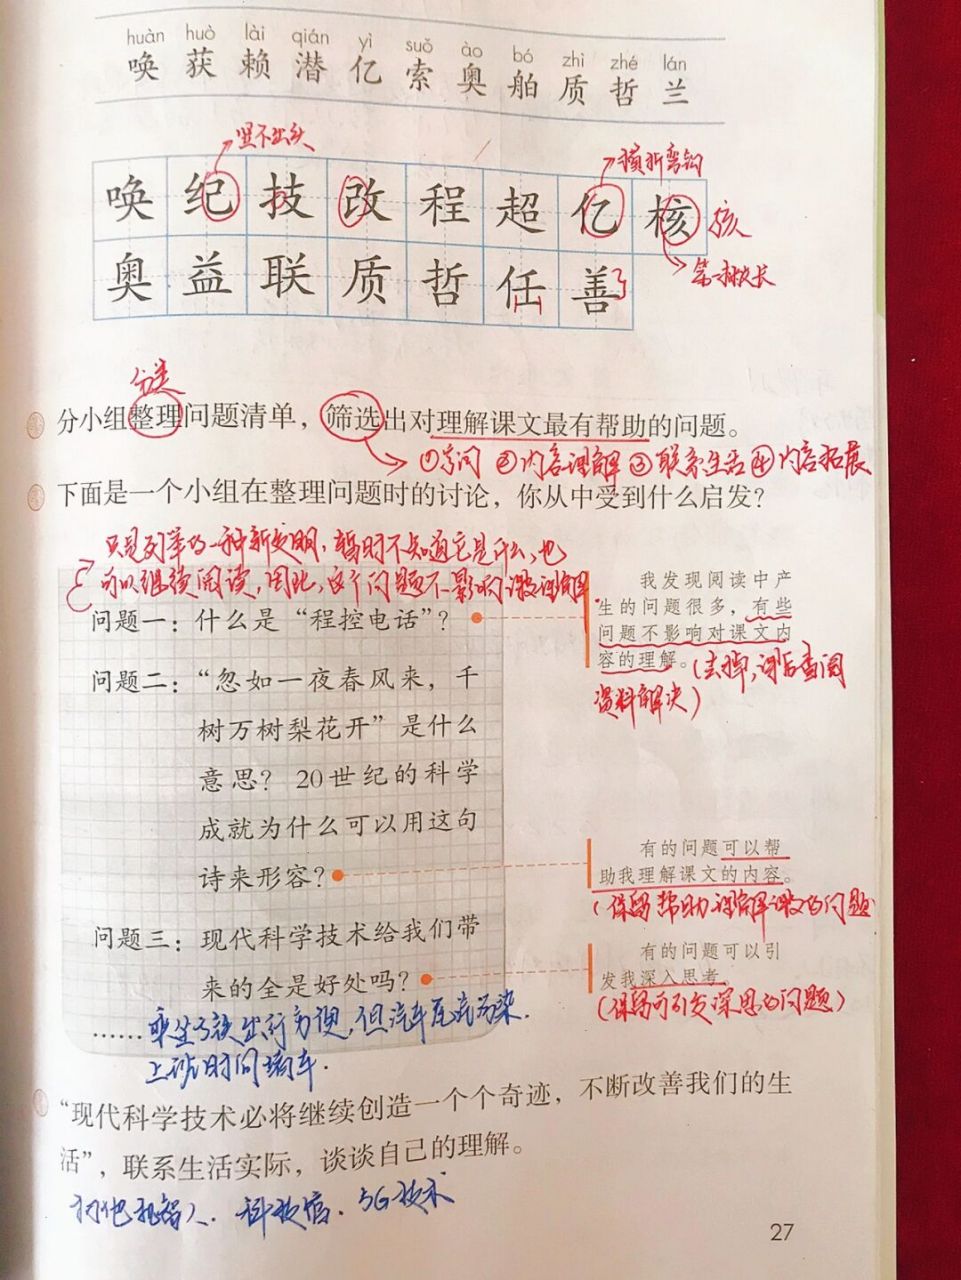 huàn huò lài qián yì suǒ ào bó zhì zhé lán
唤 获 赖 潜 亿 索 奥 舶 质 哲 兰
竖不出头
横折弯钩
唤 纪 技 改 程 超 亿 核
孩
奥 益 联 质 哲 任 善
分类
分小组整理问题清单，筛选出对理解课文最有帮助的问题。
①字词 ②内容理解 ③联系生活 ④内容拓展
下面是一个小组在整理问题时的讨论，你从中受到什么启发？
只是列举的一种新发明，暂时不知道它是什么，也
可以继续阅读，因此，这个问题不影响课文理解.
问题一：什么是“程控电话”？
我发现阅读中产
生的问题很多，有些
问题不影响对课文内
容的理解。(去掉，课后查阅
资料解决)
问题二：“忽如一夜春风来，千
树万树梨花开”是什么
意思？20世纪的科学
成就为什么可以用这句
诗来形容？
有的问题可以帮
助我理解课文的内容。
(保留帮助理解课文的问题
问题三：现代科学技术给我们带
来的全是好处吗？
有的问题可以引
发我深入思考。
(保留可引发深思的问题)
……乘坐高铁出行方便，但汽车尾气污染.
上班时间堵车.
“现代科学技术必将继续创造一个个奇迹，不断改善我们的生
活”，联系生活实际，谈谈自己的理解。
机器人. 科技馆. 5G技术
27